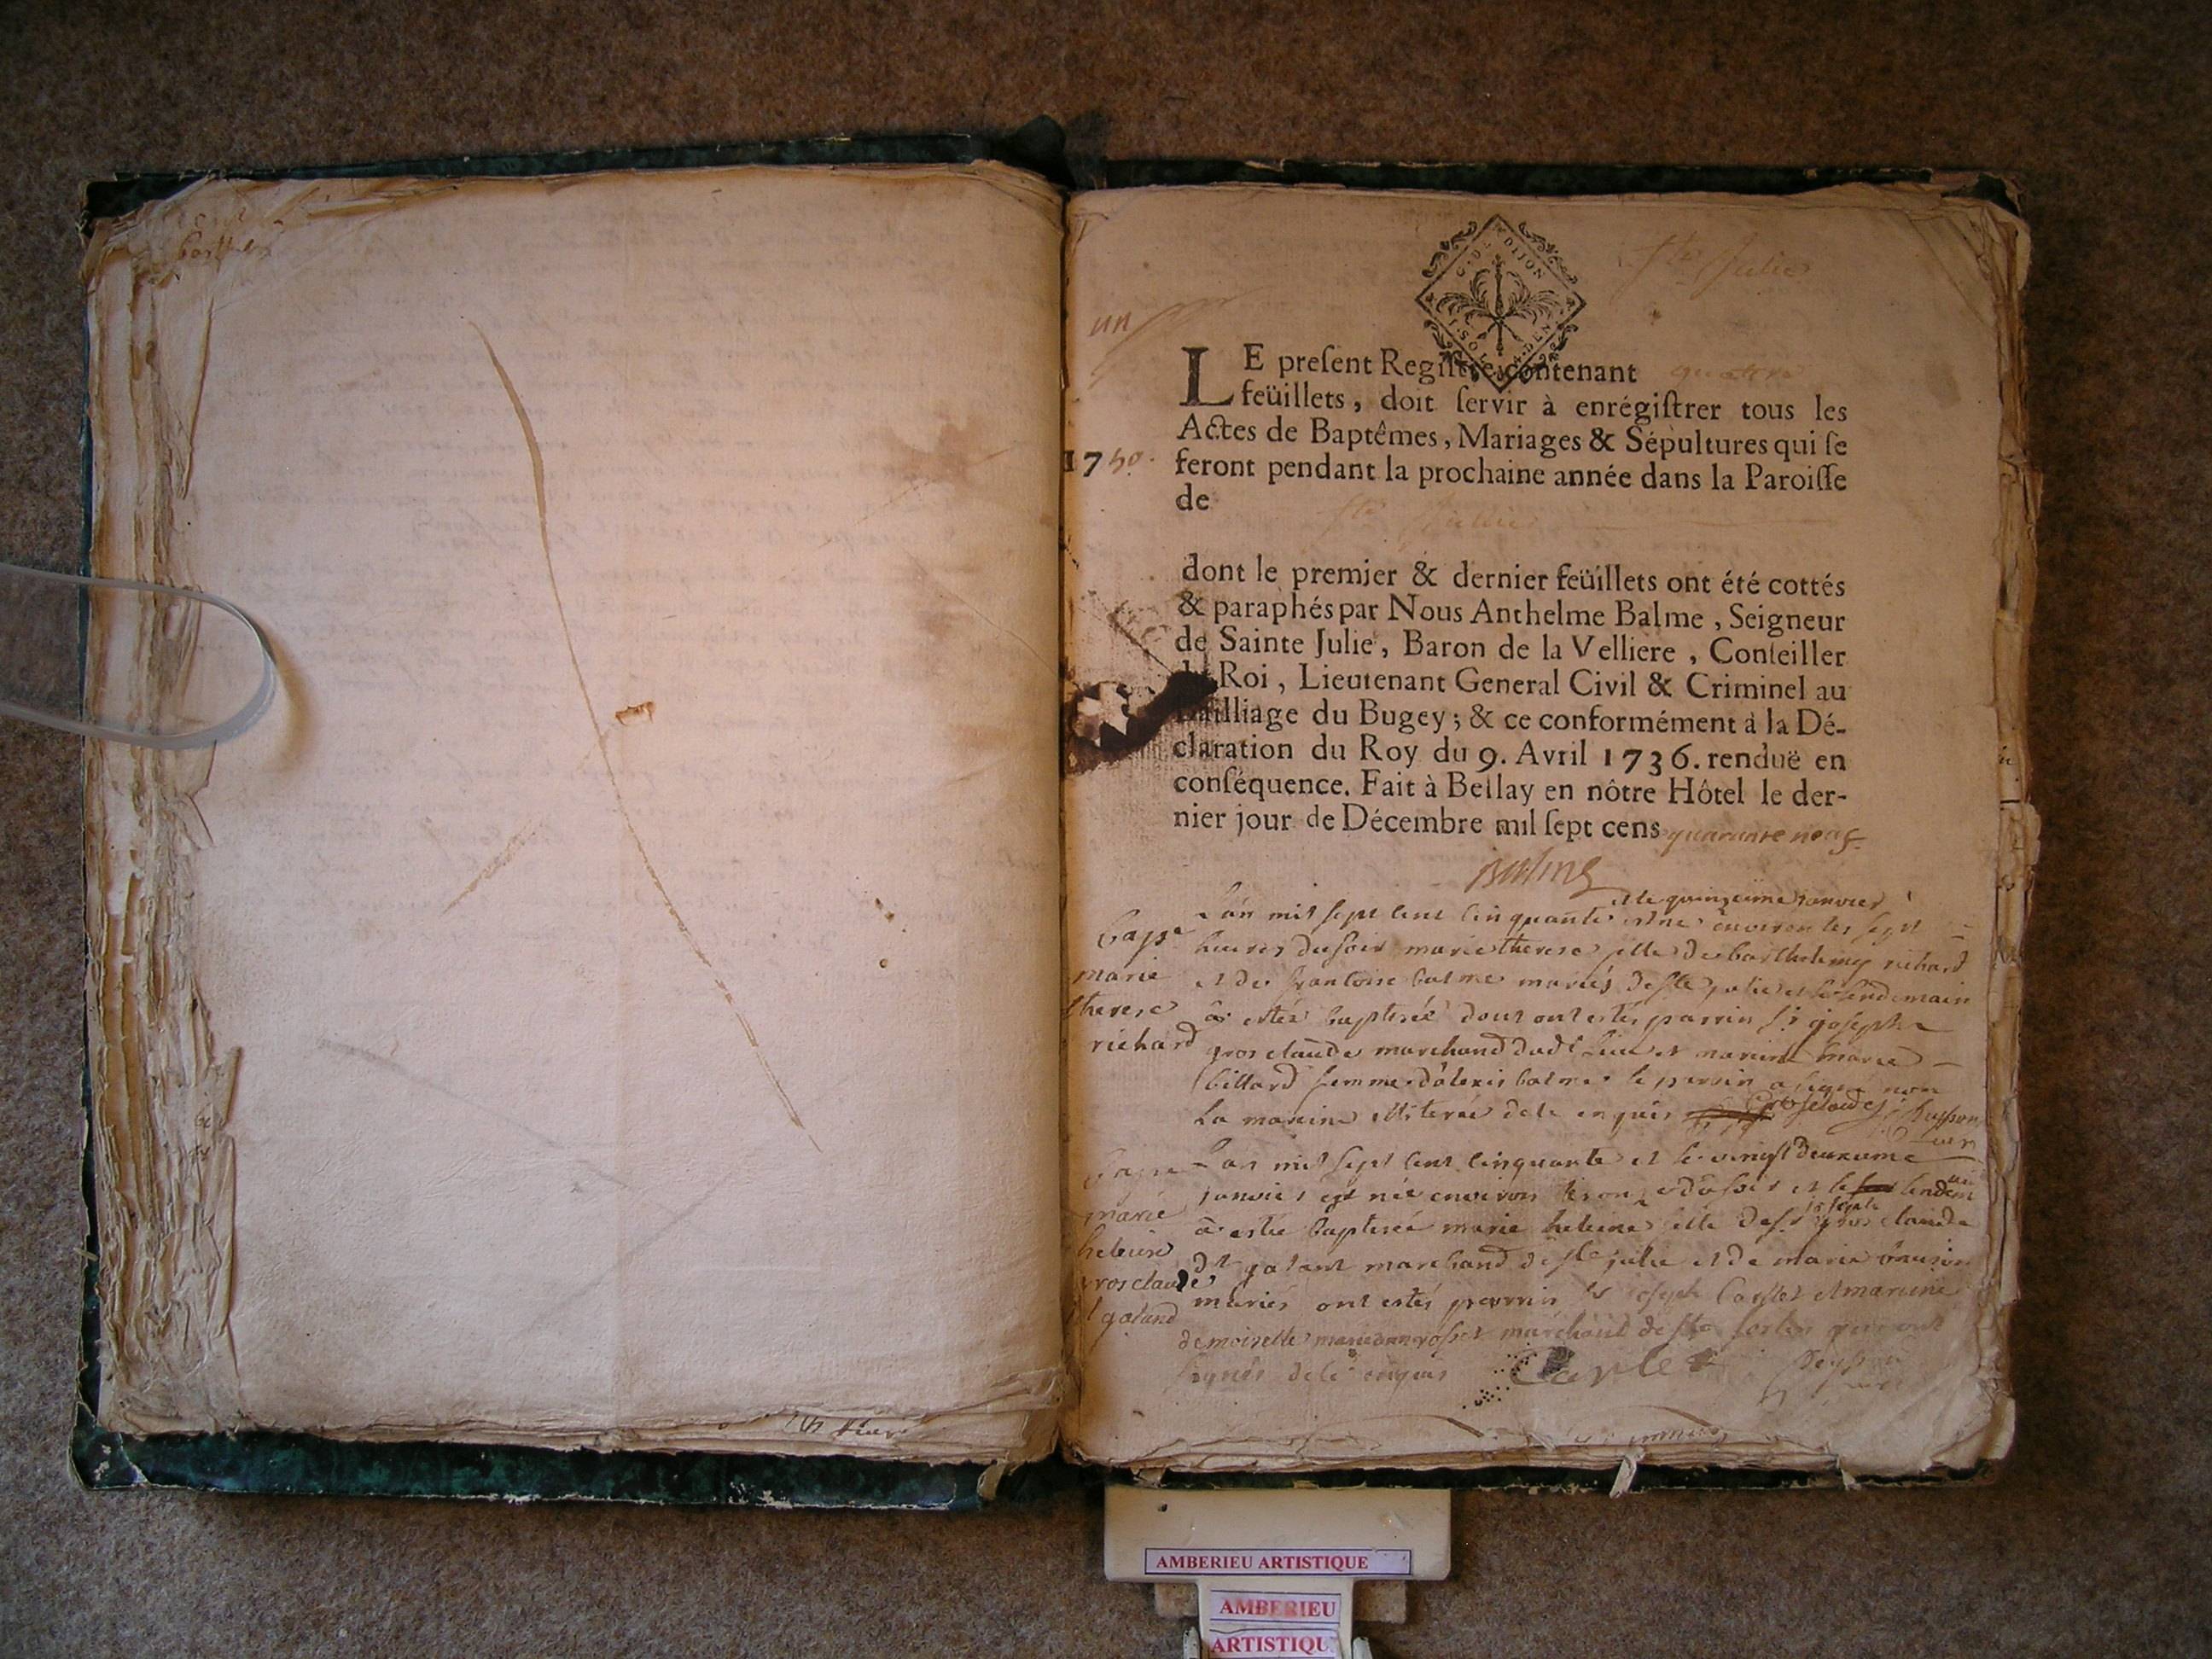 G. DE DIJON
Ste Julie
un
LE preſent Regiſtre contenant quatre
feüillets, doit ſervir à enrégiſtrer tous les
Actes de Baptêmes, Mariages & Sépultures qui ſe
1750.
feront pendant la prochaine année dans la Paroiſſe
de
Ste Jullie
dont le premier & dernier feüillets ont été cottés
& paraphés par Nous Anthelme Balme, Seigneur
de Sainte Julie, Baron de la Velliere, Conſeiller
du Roi, Lieutenant General Civil & Criminel au
Bailliage du Bugey; & ce conformément à la Dé-
claration du Roy du 9. Avril 1736. renduë en
conſéquence. Fait à Bellay en nôtre Hôtel le der-
nier jour de Décembre mil ſept cens quarante neuf
Balme
et le quinzieme janvier
L'an mil sept cent cinquante est née environ les sept
Bapt
marie
therese
richard
heures du soir marie therese fille de barthelemy richard
et de francoise balme mariés de ste julie et le lendemain
a estée baptisée dont ont estés parrin sr joseph
gros claude marchand dudt lieu et marine marie
billard femme d'alexis balme le parrin a signé non
la marine illiterée de ce enquis Grosclaude
Bapt
marie
heleine
grosclaude
galand
L'an mil sept cent cinquante et le vingt deuxieme
janvier est née environ les onze du soir et le lendemain
a estée baptisée marie heleine fille de sr joseph gros claude
dt galant marchand de ste julie et de marie
mariés ont estés parrin sr joseph Carlet et marine
demoiselle marchand de ste qui ont
signés de ce enquis Carlet
AMBERIEU ARTISTIQUE
AMBERIEU
ARTISTIQU